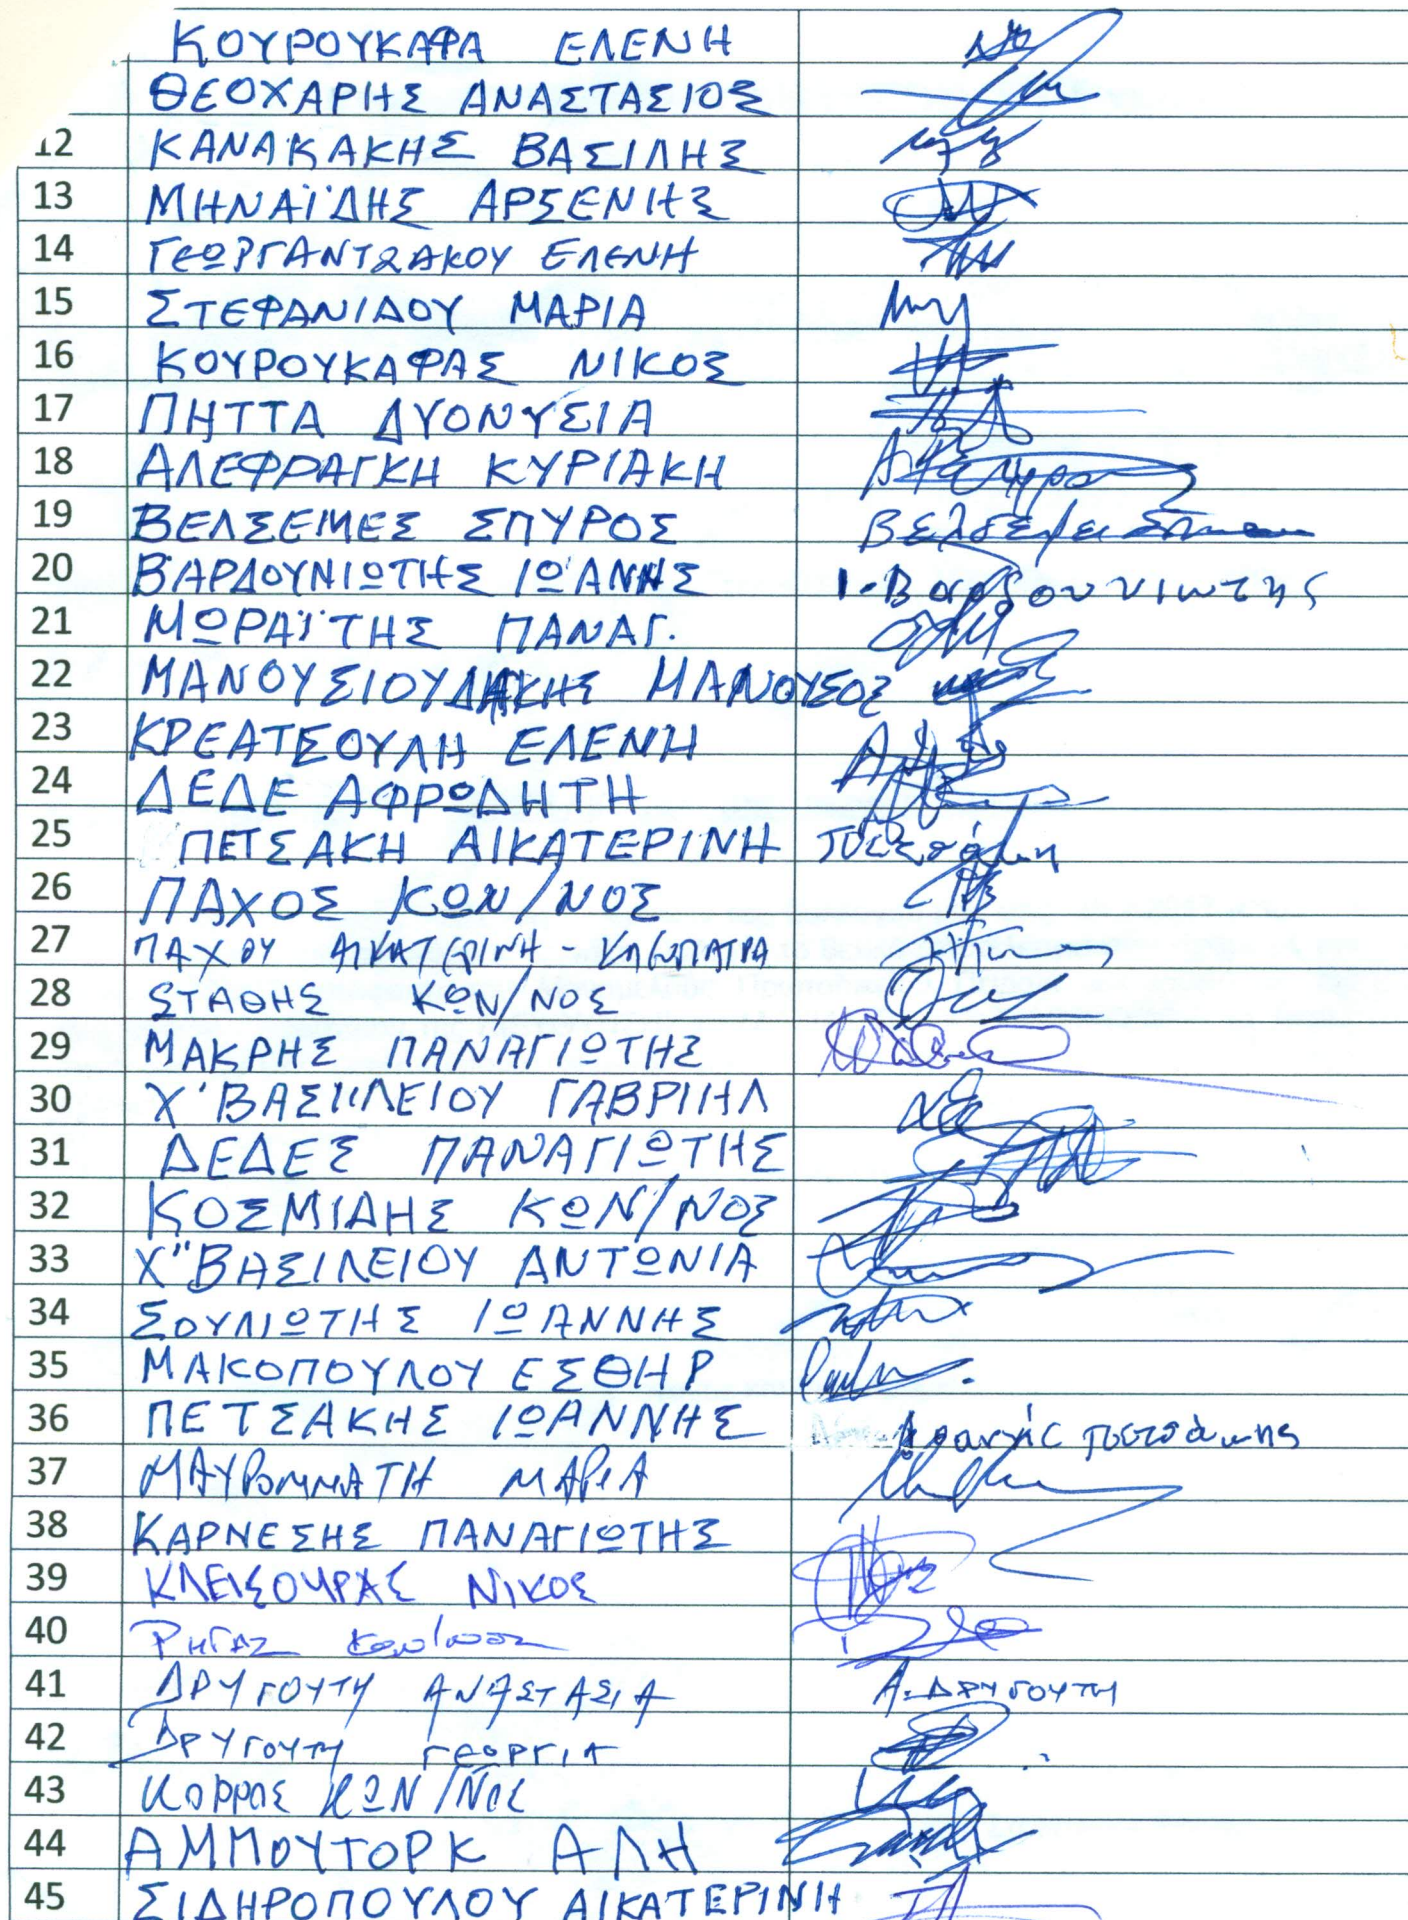 ΚΟΥΡΟΥΚΑΦΑ ΕΛΕΝΗ
ΘΕΟΧΑΡΗΣ ΑΝΑΣΤΑΣΙΟΣ
12 ΚΑΝΑΚΑΚΗΣ ΒΑΣΙΛΗΣ
13 ΜΗΝΑΪΔΗΣ ΑΡΣΕΝΗΣ
14 ΓΕΩΡΓΑΝΤΖΑΚΟΥ ΕΛΕΝΗ
15 ΣΤΕΦΑΝΙΔΟΥ ΜΑΡΙΑ
16 ΚΟΥΡΟΥΚΑΦΑΣ ΝΙΚΟΣ
17 ΠΗΤΤΑ ΔΥΟΝΥΣΙΑ
18 ΑΛΕΦΡΑΓΚΗ ΚΥΡΙΑΚΗ
19 ΒΕΛΣΕΜΕΣ ΣΠΥΡΟΣ
20 ΒΑΡΔΟΥΝΙΩΤΗΣ ΙΩΑΝΝΗΣ Ι. Βαρδουνιωτης
21 ΜΩΡΑΪΤΗΣ ΠΑΝΑΓ.
22 ΜΑΝΟΥΣΙΟΥΔΑΚΗΣ ΜΑΝΟΥΣΟΣ
23 ΚΡΕΑΤΣΟΥΛΗ ΕΛΕΝΗ
24 ΔΕΔΕ ΑΦΡΩΔΗΤΗ
25 ΠΕΤΣΑΚΗ ΑΙΚΑΤΕΡΙΝΗ Πετσάκη
26 ΠΑΧΟΣ ΚΩΝ/ΝΟΣ
27 ΠΑΧΟΥ ΑΙΚΑΤΕΡΙΝΗ - ΚΛΕΟΠΑΤΡΑ
28 ΣΤΑΘΗΣ ΚΩΝ/ΝΟΣ
29 ΜΑΚΡΗΣ ΠΑΝΑΓΙΩΤΗΣ
30 Χ'ΒΑΣΙΛΕΙΟΥ ΓΑΒΡΙΗΛ
31 ΔΕΔΕΣ ΠΑΝΑΓΙΩΤΗΣ
32 ΚΟΣΜΙΔΗΣ ΚΩΝ/ΝΟΣ
33 Χ"ΒΑΣΙΛΕΙΟΥ ΑΝΤΩΝΙΑ
34 ΣΟΥΛΙΩΤΗΣ ΙΩΑΝΝΗΣ
35 ΜΑΚΟΠΟΥΛΟΥ ΕΣΘΗΡ
36 ΠΕΤΣΑΚΗΣ ΙΩΑΝΝΗΣ Πετσάκης
37 ΜΑΥΡΟΜΜΑΤΗ ΜΑΡΙΑ
38 ΚΑΡΝΕΣΗΣ ΠΑΝΑΓΙΩΤΗΣ
39 ΚΛΕΙΣΟΥΡΑΣ ΝΙΚΟΣ
40 ΡΗΓΑΣ
41 ΔΡΥΓΟΥΤΗ ΑΝΑΣΤΑΣΙΑ Α. ΔΡΥΓΟΥΤΗ
42 ΔΡΥΓΟΥΤΗ ΓΕΩΡΓΙΑ
43 ΚΟΡΡΟΣ ΚΩΝ/ΝΟΣ
44 ΑΜΠΟΥΤΟΡΚ ΑΛΗ
45 ΣΙΔΗΡΟΠΟΥΛΟΥ ΑΙΚΑΤΕΡΙΝΗ